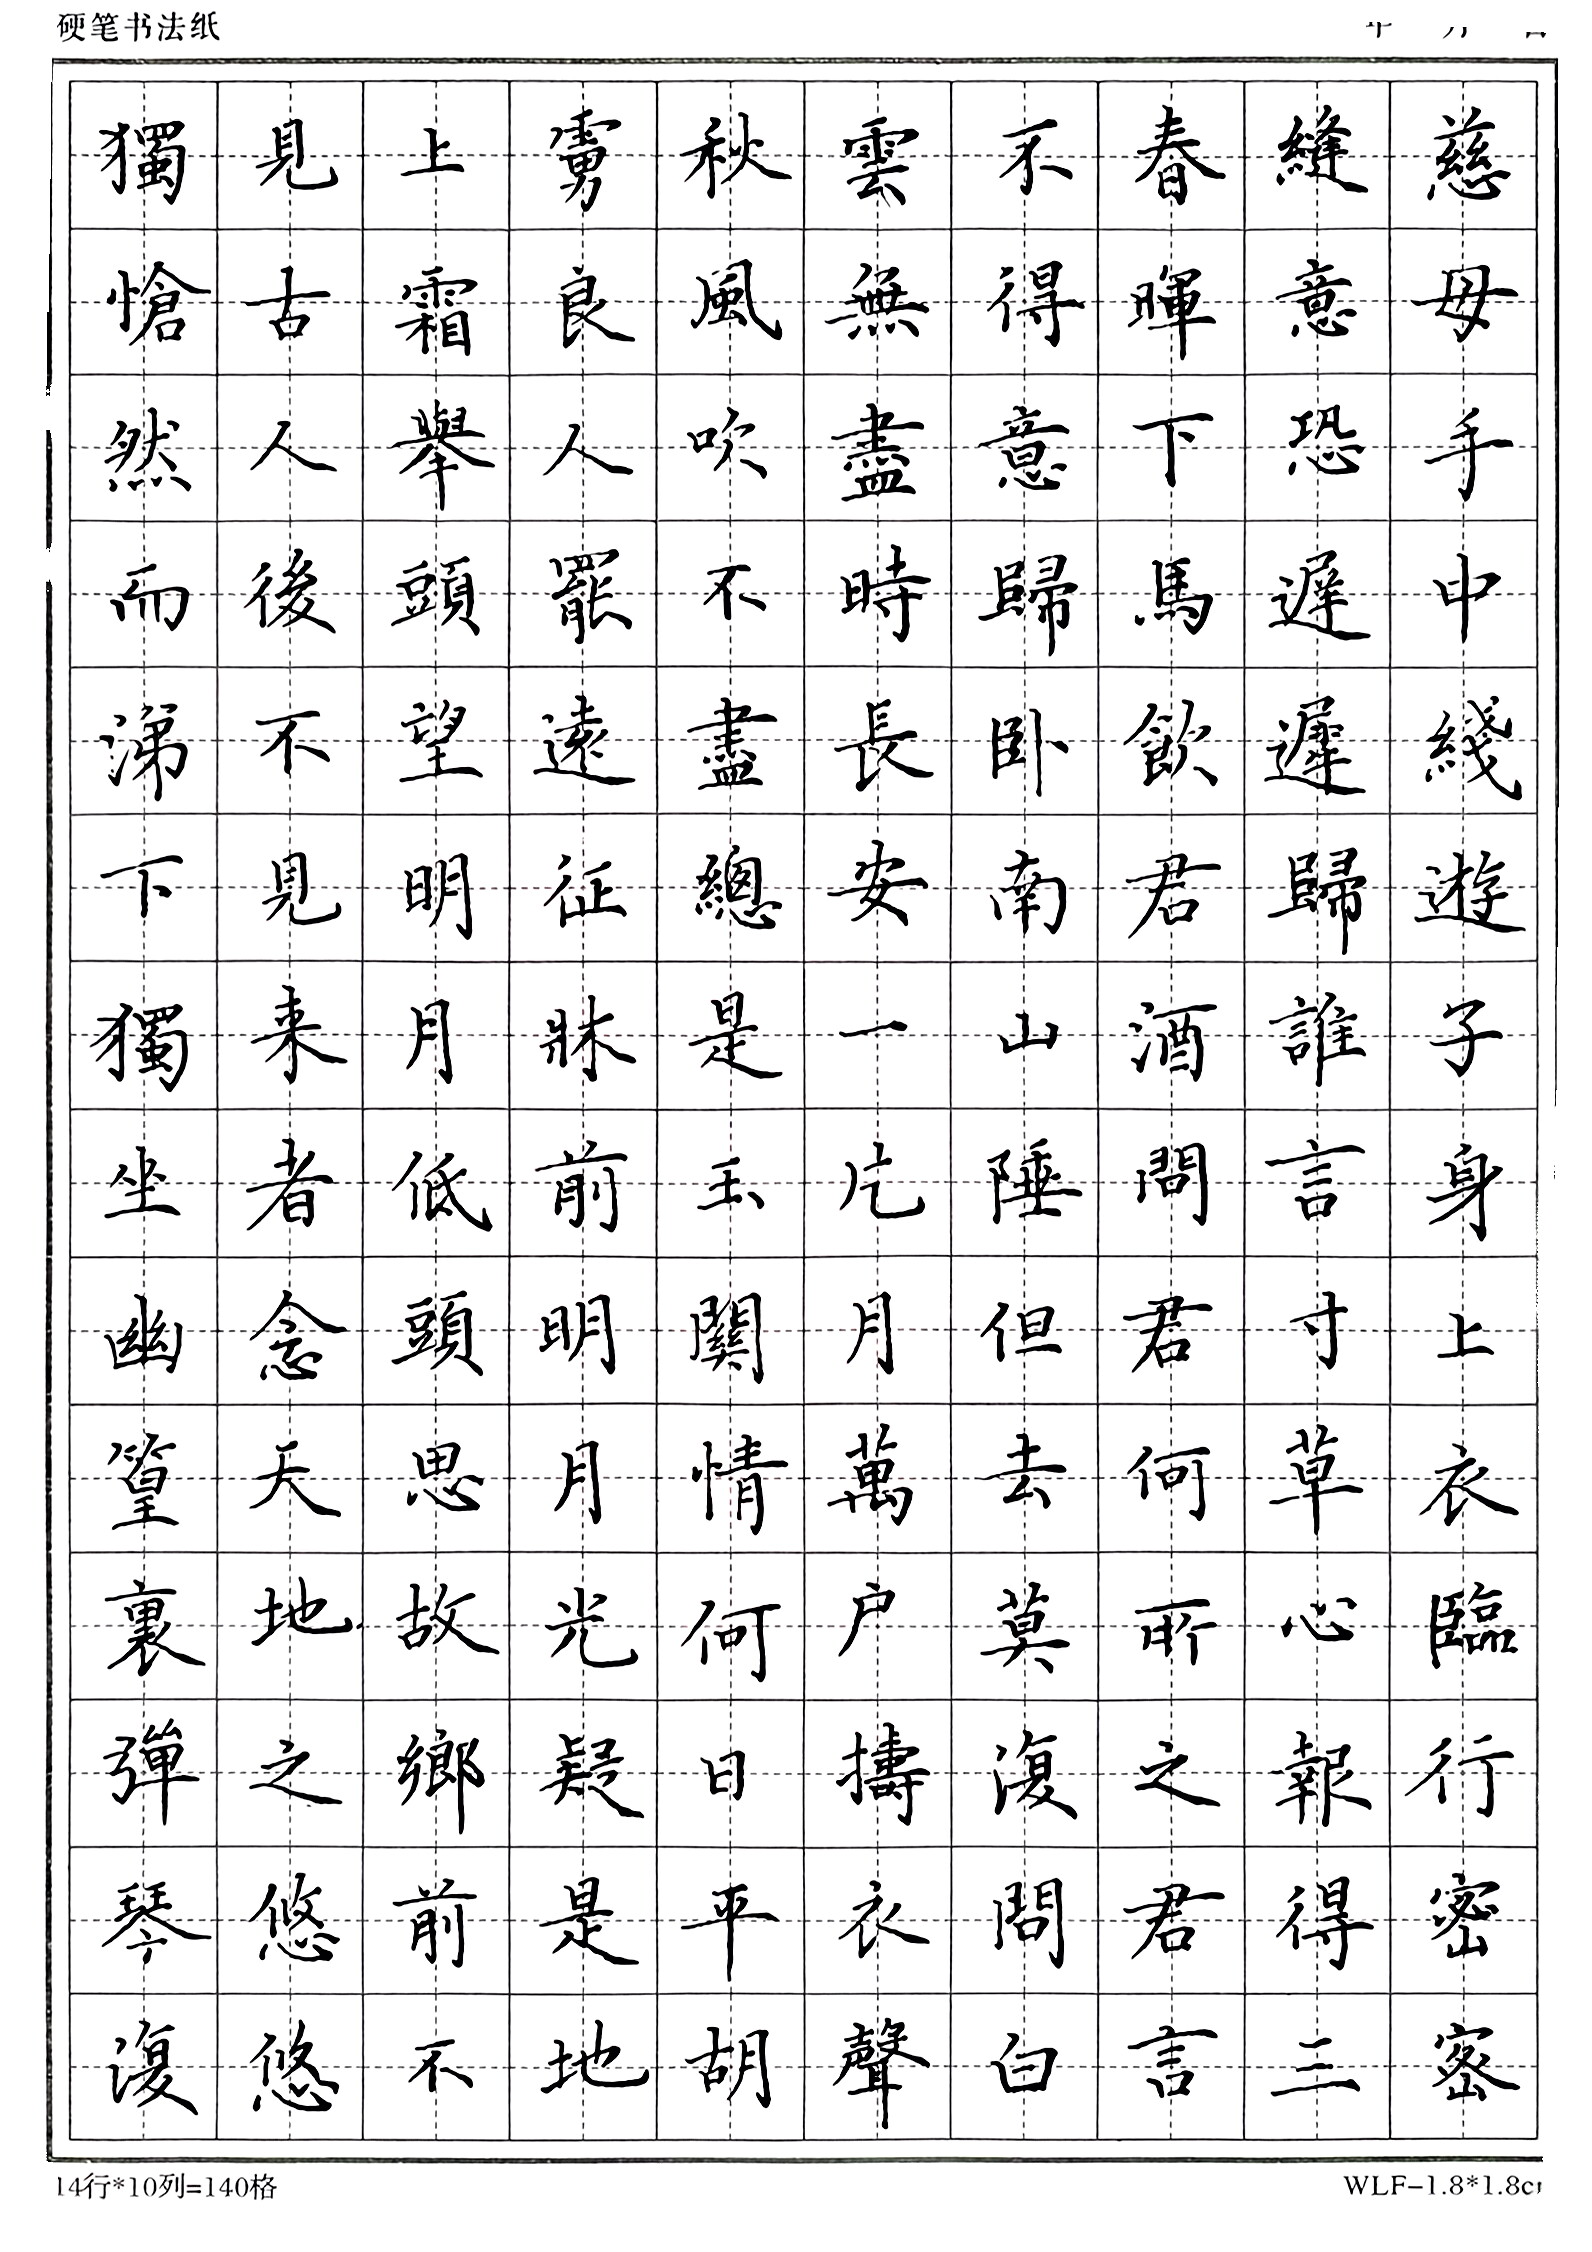 硬笔书法纸
年 月 日
慈母手中綫遊子身上衣臨行密密
縫意恐遲遲歸誰言寸草心報得三
春暉下馬飲君酒問君何所之君言
不得意歸卧南山陲但去莫復問白
雲無盡時長安一片月萬户擣衣聲
秋風吹不盡總是玉關情何日平胡
虜良人罷遠征牀前明月光疑是地
上霜舉頭望明月低頭思故鄉前不
見古人後不見来者念天地之悠悠
獨愴然而涕下獨坐幽篁裏彈琴復
14行*10列=140格
WLF-1.8*1.8c